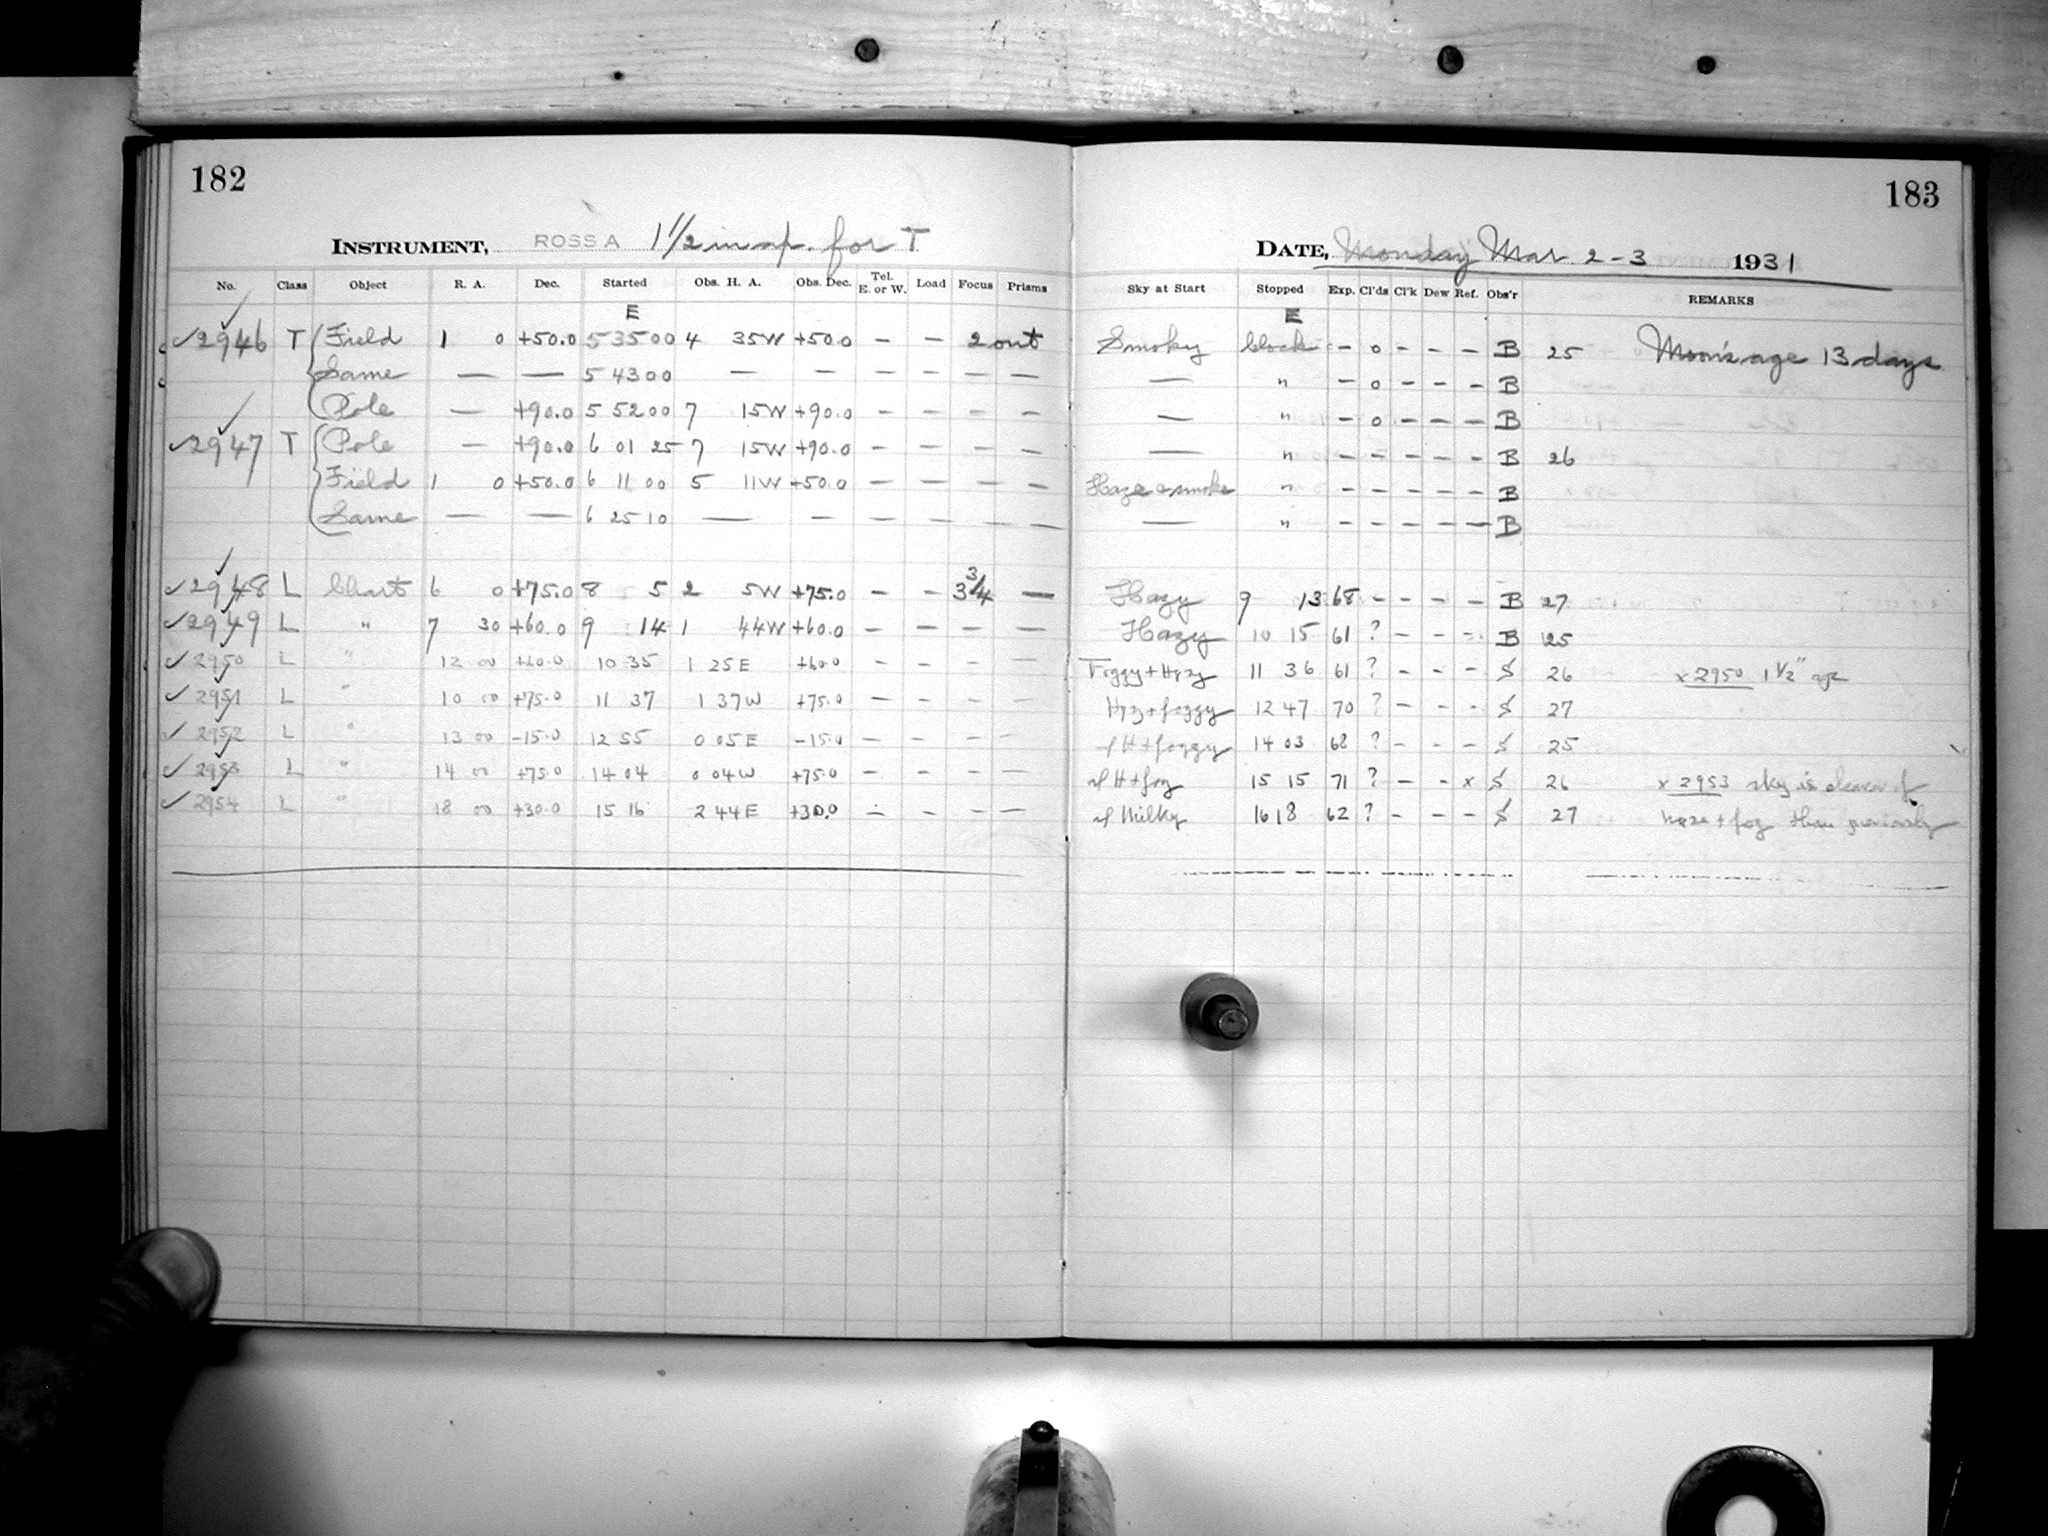 182
INSTRUMENT, ROSS A 1 1/2 in ap. for T
No. Class Object R. A. Dec. Started Obs. H. A. Obs. Dec. Tel. E. or W. Load Focus Prisms
E
✓2946 T Field 1 0 +50.0 5 35 00 4 35W +50.0 — — 2 out
Same — — 5 43 00 — — — — — —
Pole — +90.0 5 52 00 7 15W +90.0 — — — —
✓2947 T Pole — +90.0 6 01 25 7 15W +90.0 — — — —
Field 1 0 +50.0 6 11 00 5 11W +50.0 — — — —
Same — — 6 25 10 — — — — — —
✓2948 L Chart 6 0 +75.0 8 5 2 5W +75.0 — — 3 3/4 —
✓2949 L " 7 30 +60.0 9 14 1 44W +60.0 — — — —
✓2950 L " 12 00 +60.0 10 35 1 25E +60.0 — — — —
✓2951 L " 10 00 +75.0 11 37 1 37W +75.0 — — — —
✓2952 L " 13 00 -15.0 12 55 0 05E -15.0 — — — —
✓2953 L " 14 00 +75.0 14 04 0 04W +75.0 — — — —
✓2954 L " 18 00 +30.0 15 16 2 44E +30.0 — — — —
183
DATE, Monday Mar 2-3 1931
Sky at Start Stopped Exp. Cl'ds Cl'k Dew Ref. Obs'r REMARKS
E
Smoky Clock — 0 — — — B 25 Moon's age 13 days
— " — 0 — — — B
— " — 0 — — — B
— " — — — — — B 26
Haze & smoke " — — — — — B
— " — — — — — B
Hazy 9 13 68 — — — — B 27
Hazy 10 15 61 ? — — — B 25
Foggy + Hazy 11 36 61 ? — — — S 26 x 2950 1 1/2" ap
Hazy + foggy 12 47 70 ? — — — S 27
H + foggy 14 03 68 ? — — — S 25
H + fog 15 15 71 ? — — x S 26 x 2953 sky is clearer of
Milky 16 18 62 ? — — — S 27 haze + fog than previously